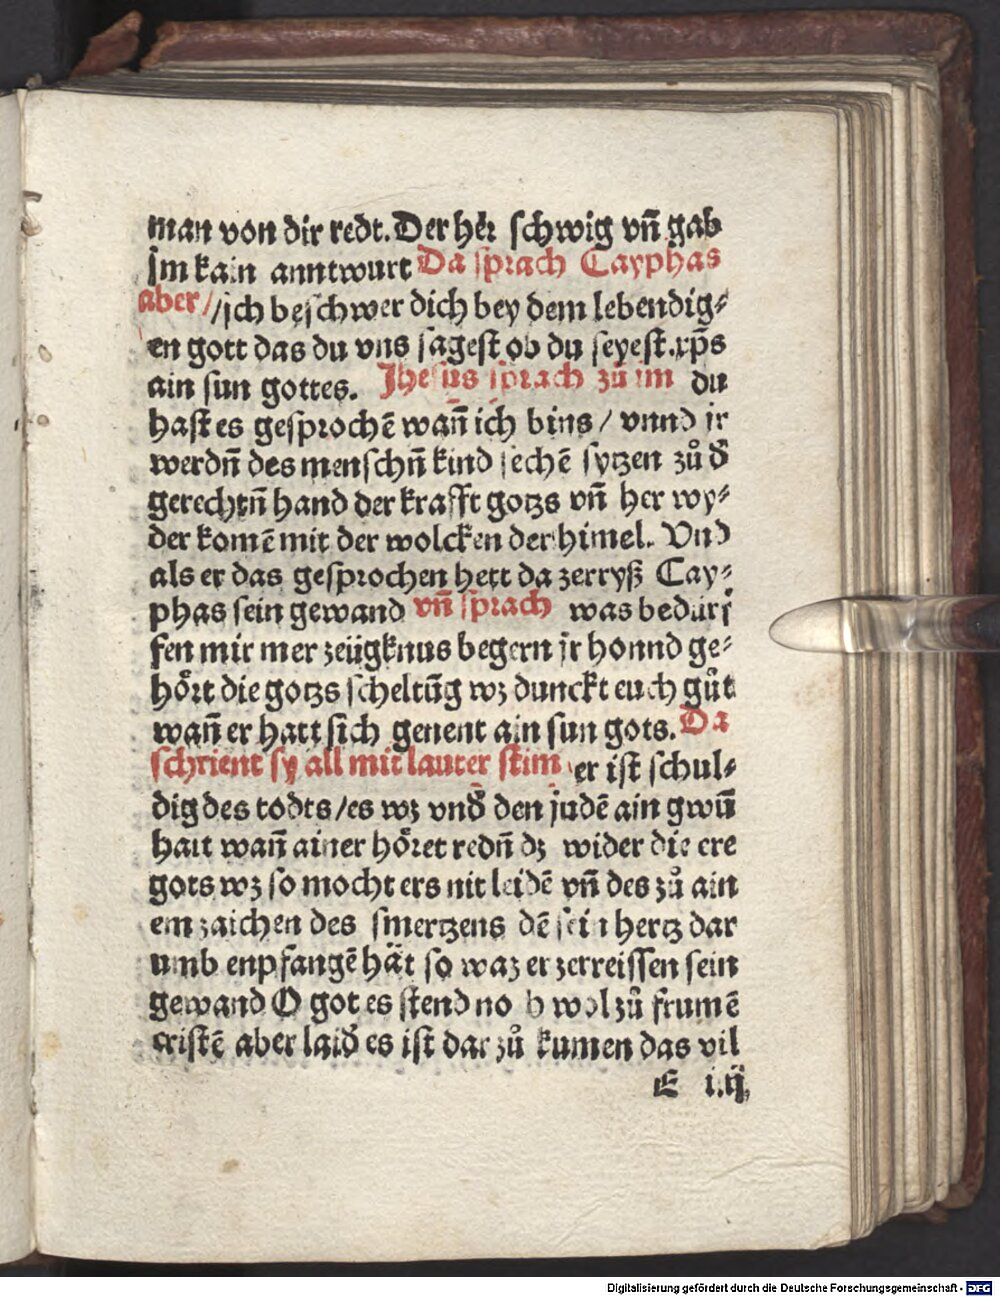 man von dir redt. Der her schwig vñ gab
im kain anntwurt Da sprach Cayphas
aber // ich beschwer dich bey dem lebendig⸗
en gott das du vns sagest ob du seyest xp̃s
ain sun gottes. Jhesus sprach zů im du
hast es gesprochē wañ ich bins / vnnd ir
werdñ des menschñ kind sechē sytzen zů d̕
gerechtñ hand der krafft gotzs vñ her wy⸗
der komē mit der wolcken der himel. Vnd
als er das gesprochen hett da zerryß Cay⸗
phas sein gewand vñ sprach was bedürf
fen mir mer zeügknus begern jr honnd ge⸗
hört die gotzs scheltūg wz dunckt euch gůt
wañ er hatt sich genent ain sun gots. Da
schrient sy all mit lauter stim er ist schul⸗
dig des todts / es wz vnd̕ den judē ain gwū
hait wañ ainer höret redñ dz wider die ere
gots wz so mocht ers nit leidē vñ des zů ain
em zaichen des smertzens dē sein hertz dar
umb enpfangē hät so waz er zerreissen sein
gewand O got es stend no h wol zů frumē
cristē aber laid̕ es ist dar zů kumen das vil
E iij
Digitalisierung gefördert durch die Deutsche Forschungsgemeinschaft - DFG